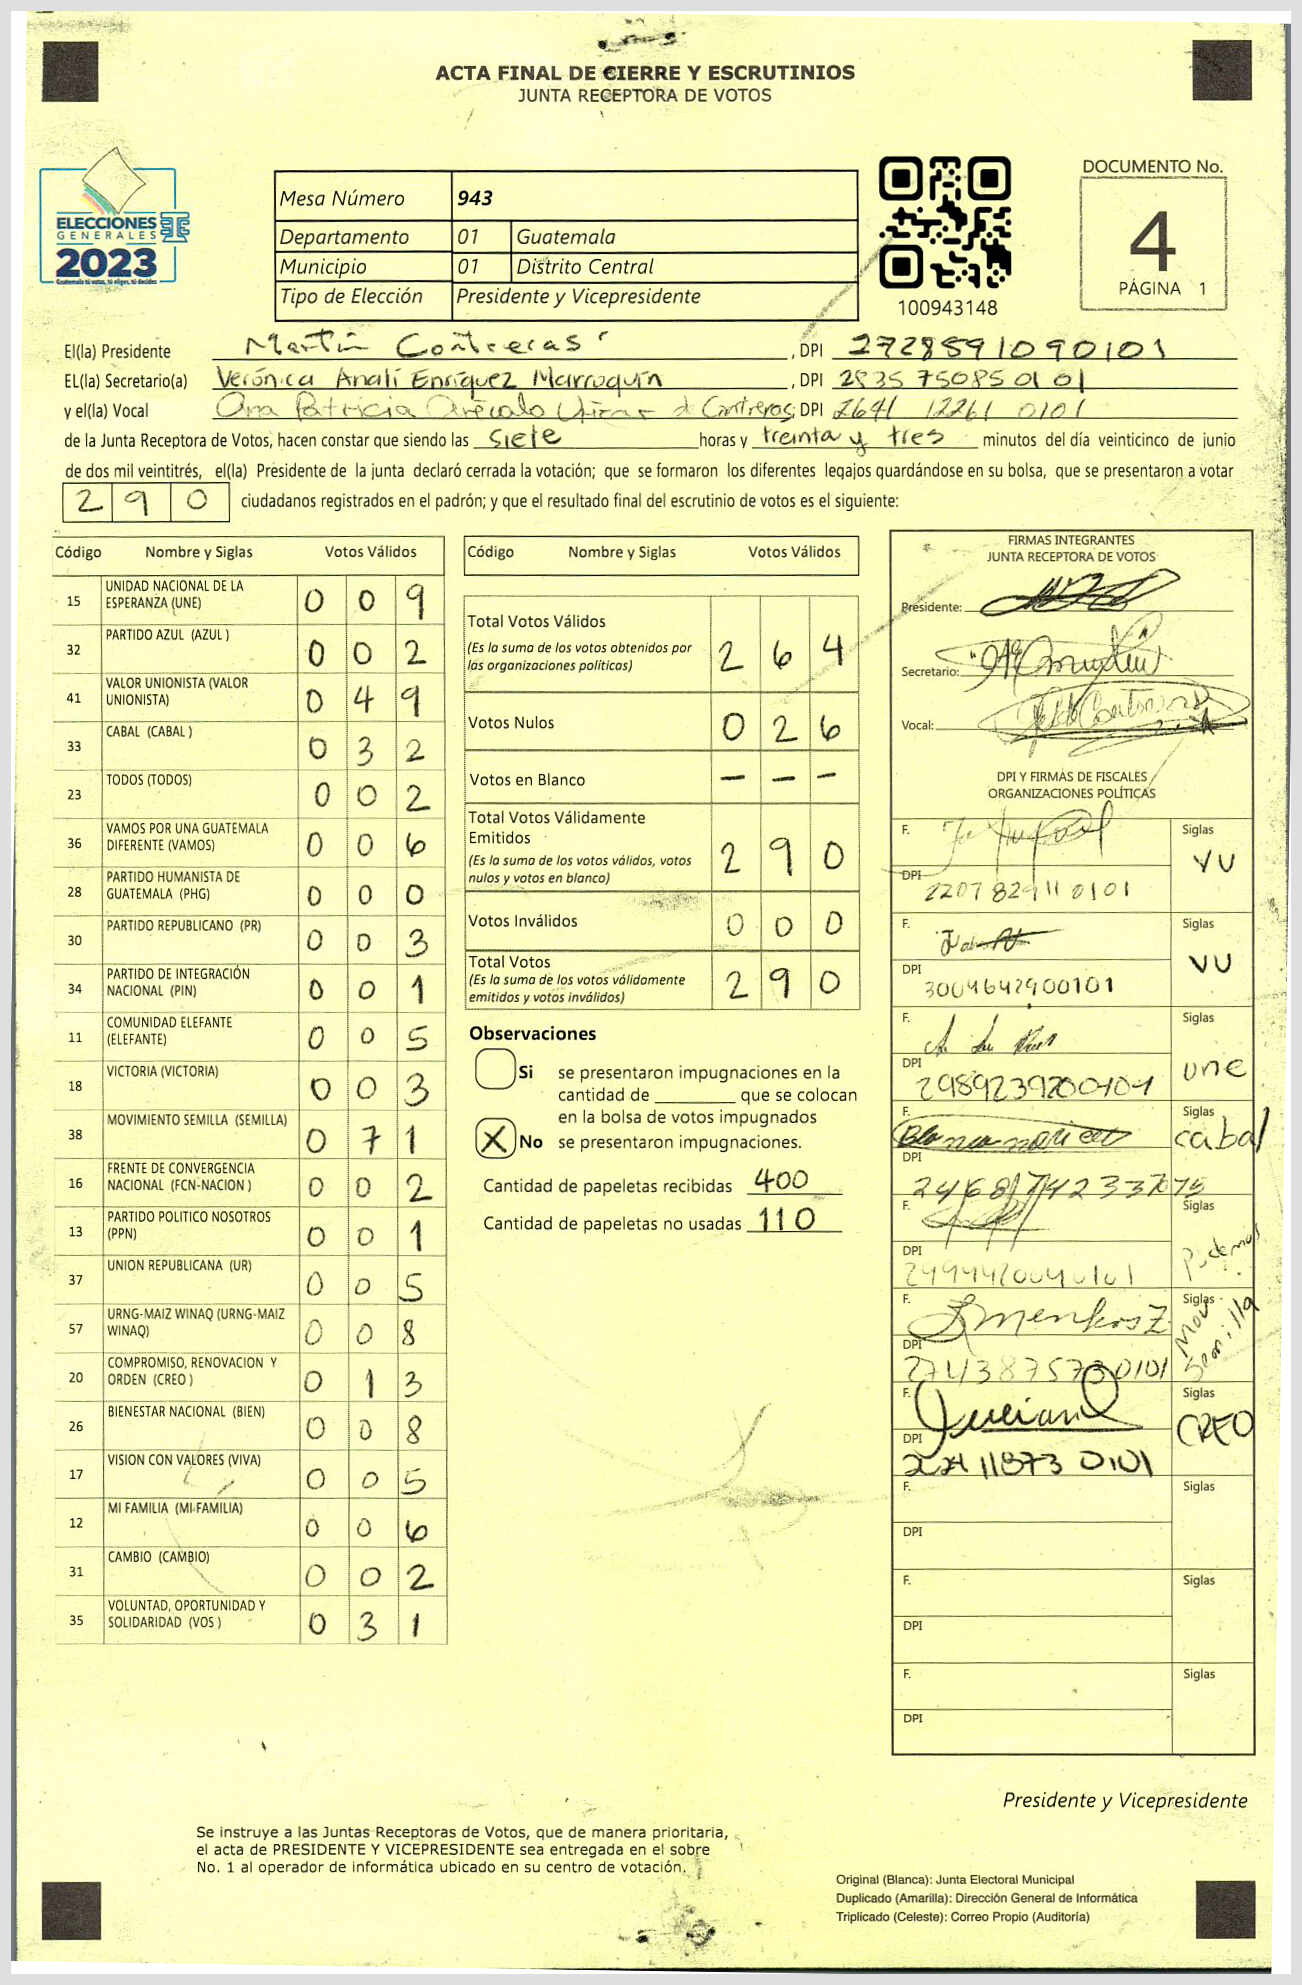 ACTA FINAL DE CIERRE Y ESCRUTINIOS
JUNTA RECEPTORA DE VOTOS
ELECCIONES
GENERALES
2023
Guatemala tú votas, tú eliges, tú decides
Mesa Número 943
Departamento 01 Guatemala
Municipio 01 Distrito Central
Tipo de Elección Presidente y Vicepresidente
100943148
DOCUMENTO No.
4
PÁGINA 1
El(la) Presidente Martín Contreras , DPI 2728591090101
EL(la) Secretario(a) Verónica Analí Enríquez Marroquín , DPI 2835750850101
y el(la) Vocal Ana Patricia Arévalo de Contreras, DPI 2641 12261 0101
de la Junta Receptora de Votos, hacen constar que siendo las siete horas y treinta y tres minutos del día veinticinco de junio
de dos mil veintitrés, el(la) Presidente de la junta declaró cerrada la votación; que se formaron los diferentes legajos guardándose en su bolsa, que se presentaron a votar
290 ciudadanos registrados en el padrón; y que el resultado final del escrutinio de votos es el siguiente:
Código Nombre y Siglas Votos Válidos
15 UNIDAD NACIONAL DE LA ESPERANZA (UNE) 0 0 9
32 PARTIDO AZUL (AZUL ) 0 0 2
41 VALOR UNIONISTA (VALOR UNIONISTA) 0 4 9
33 CABAL (CABAL ) 0 3 2
23 TODOS (TODOS) 0 0 2
36 VAMOS POR UNA GUATEMALA DIFERENTE (VAMOS) 0 0 6
28 PARTIDO HUMANISTA DE GUATEMALA (PHG) 0 0 0
30 PARTIDO REPUBLICANO (PR) 0 0 3
34 PARTIDO DE INTEGRACIÓN NACIONAL (PIN) 0 0 1
11 COMUNIDAD ELEFANTE (ELEFANTE) 0 0 5
18 VICTORIA (VICTORIA) 0 0 3
38 MOVIMIENTO SEMILLA (SEMILLA) 0 7 1
16 FRENTE DE CONVERGENCIA NACIONAL (FCN-NACION ) 0 0 2
13 PARTIDO POLITICO NOSOTROS (PPN) 0 0 1
37 UNION REPUBLICANA (UR) 0 0 5
57 URNG-MAIZ WINAQ (URNG-MAIZ WINAQ) 0 0 8
20 COMPROMISO, RENOVACION Y ORDEN (CREO ) 0 1 3
26 BIENESTAR NACIONAL (BIEN) 0 0 8
17 VISION CON VALORES (VIVA) 0 0 5
12 MI FAMILIA (MI FAMILIA) 0 0 6
31 CAMBIO (CAMBIO) 0 0 2
35 VOLUNTAD, OPORTUNIDAD Y SOLIDARIDAD (VOS ) 0 3 1
Código Nombre y Siglas Votos Válidos
Total Votos Válidos
(Es la suma de los votos obtenidos por
las organizaciones políticas) 2 6 4
Votos Nulos 0 2 6
Votos en Blanco – – –
Total Votos Válidamente
Emitidos
(Es la suma de los votos válidos, votos
nulos y votos en blanco) 2 9 0
Votos Inválidos 0 0 0
Total Votos
(Es la suma de los votos válidamente
emitidos y votos inválidos) 2 9 0
Observaciones
Si se presentaron impugnaciones en la
cantidad de ________ que se colocan
en la bolsa de votos impugnados
X No se presentaron impugnaciones.
Cantidad de papeletas recibidas 400
Cantidad de papeletas no usadas 110
FIRMAS INTEGRANTES
JUNTA RECEPTORA DE VOTOS
Presidente:
Secretario:
Vocal:
DPI Y FIRMAS DE FISCALES
ORGANIZACIONES POLÍTICAS
F. Siglas VU
DPI 2207829110101
F. Siglas VU
DPI 3004642900101
F. Siglas une
DPI 2989239200101
F. Siglas cabal
DPI
F. Siglas Podemos
DPI
F. Siglas Mov Semilla
DPI
F. Siglas CREO
DPI
F. Siglas
DPI
F. Siglas
DPI
F. Siglas
DPI
Presidente y Vicepresidente
Se instruye a las Juntas Receptoras de Votos, que de manera prioritaria,
el acta de PRESIDENTE Y VICEPRESIDENTE sea entregada en el sobre
No. 1 al operador de informática ubicado en su centro de votación.
Original (Blanca): Junta Electoral Municipal
Duplicado (Amarilla): Dirección General de Informática
Triplicado (Celeste): Correo Propio (Auditoría)